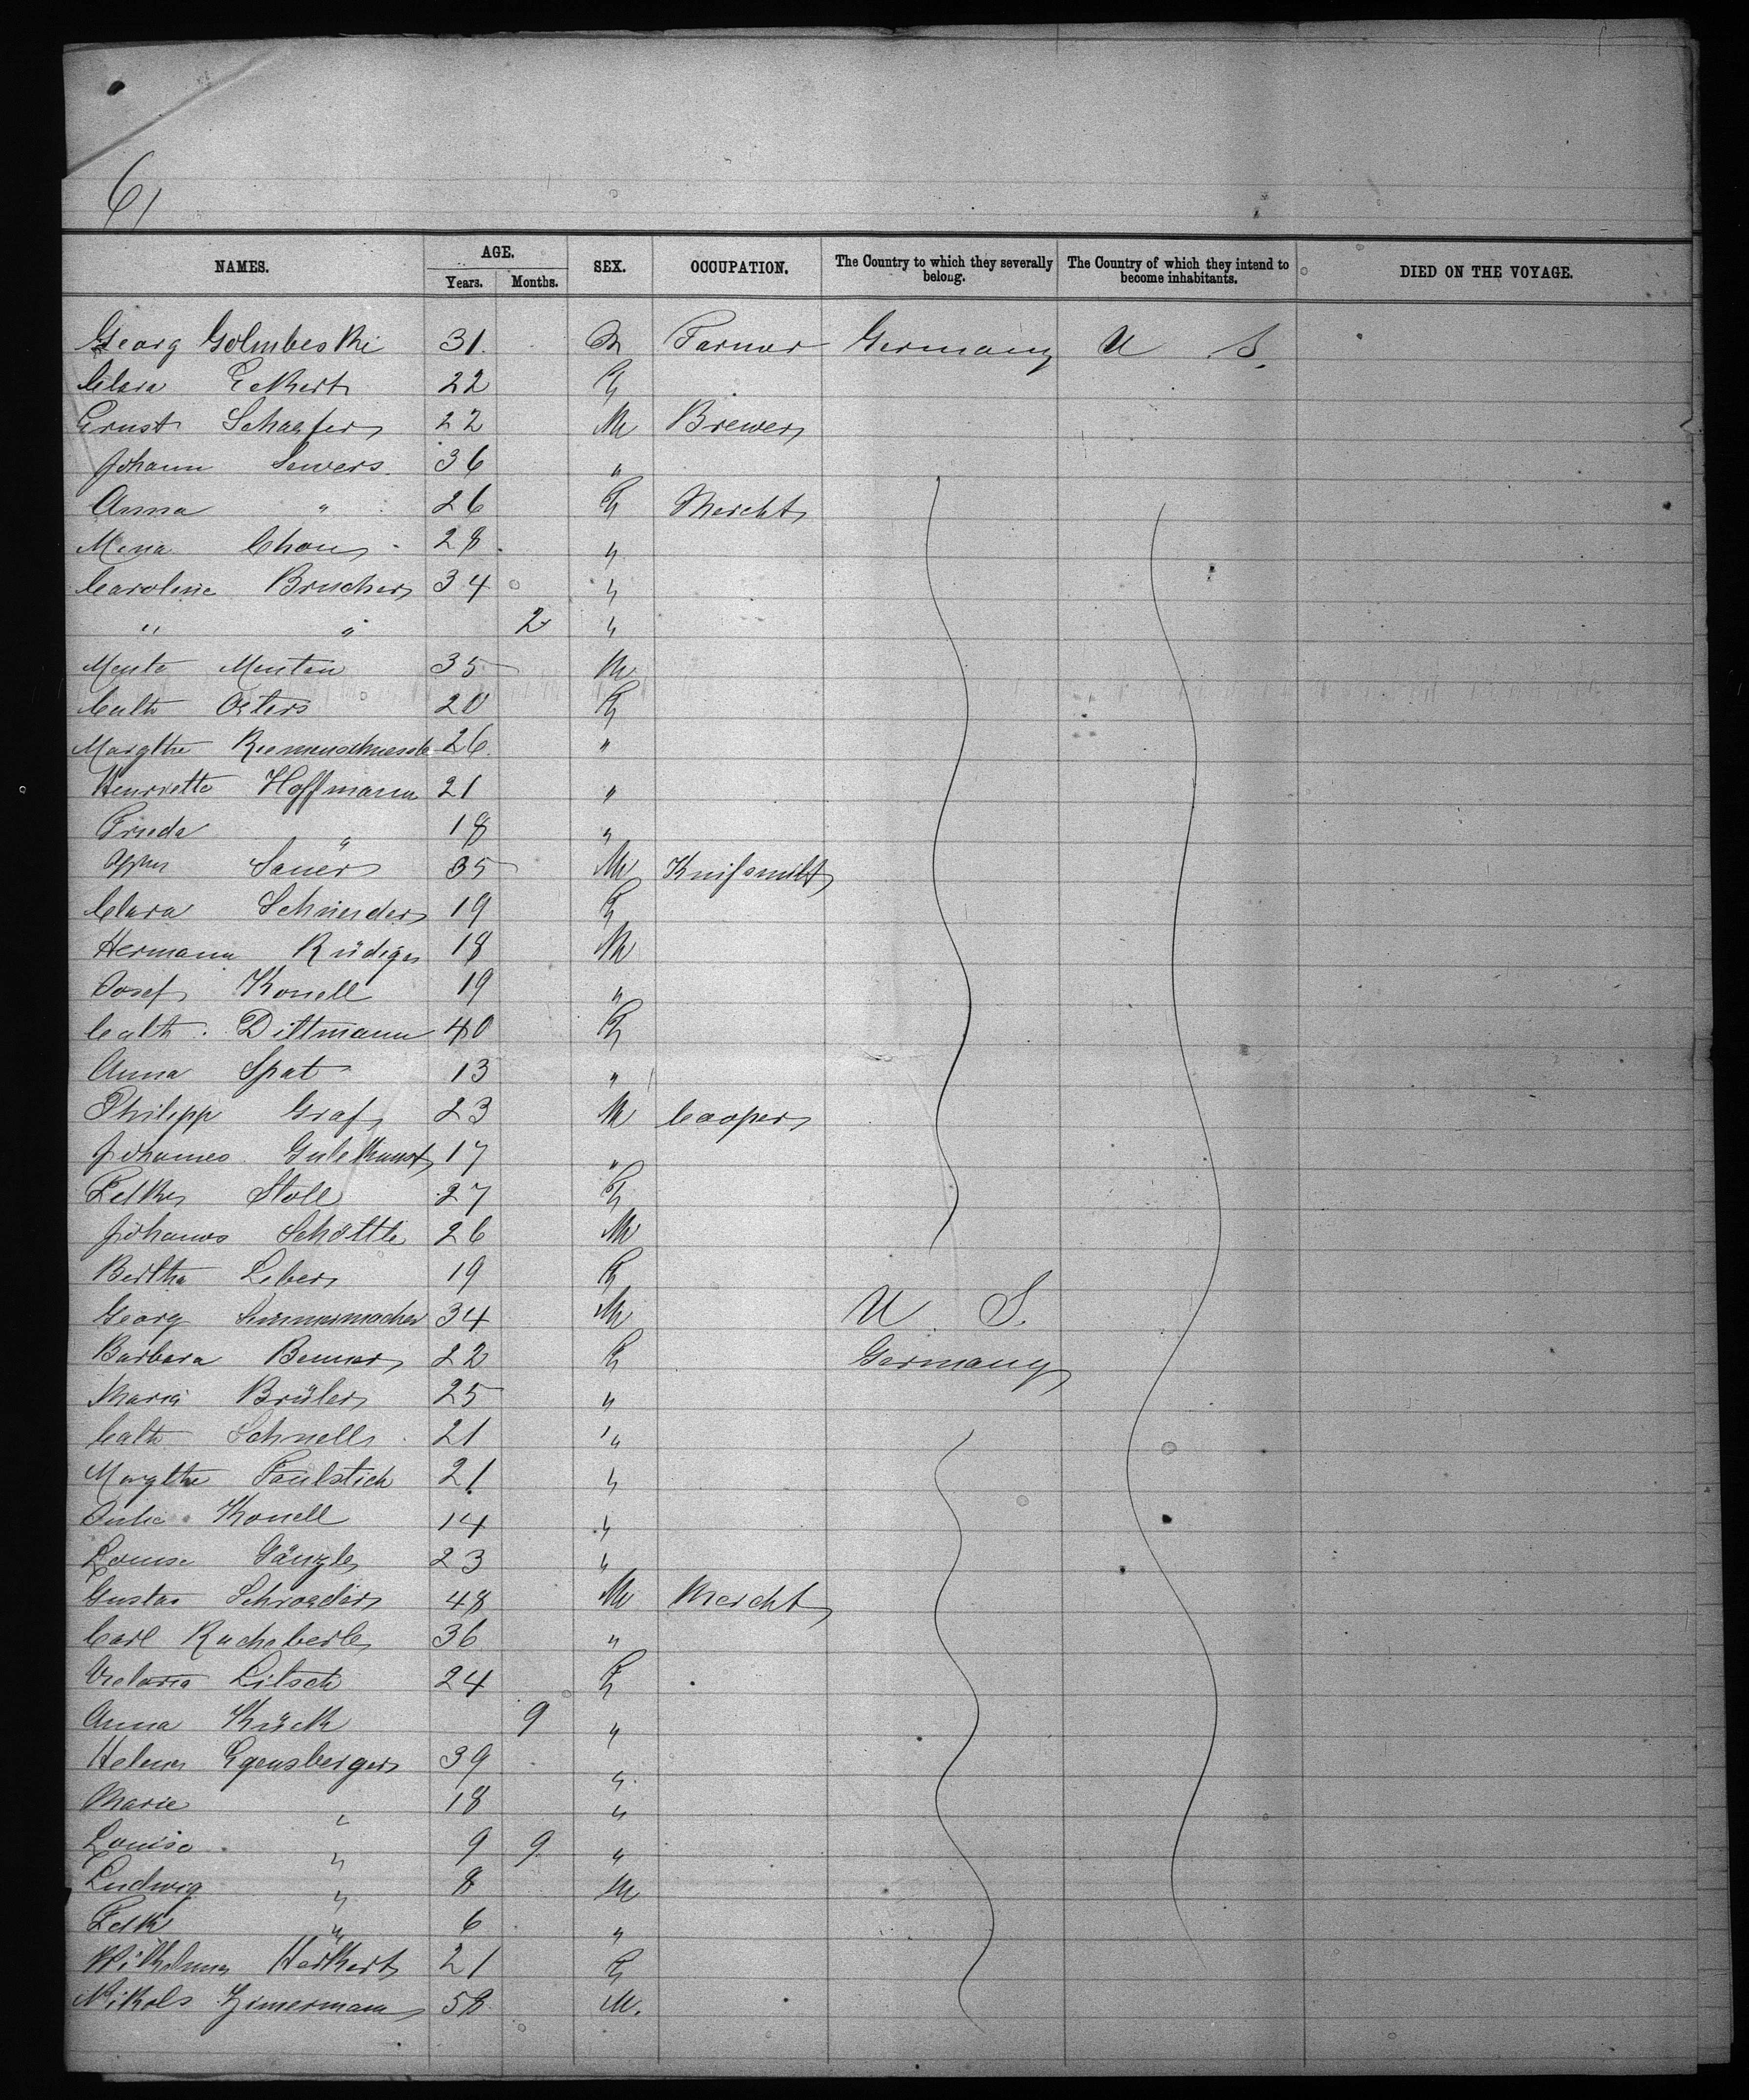 61
NAMES. AGE. Years. Months. SEX. OCCUPATION. The Country to which they severally belong. The Country of which they intend to become inhabitants. DIED ON THE VOYAGE.
Georg Golmbeski 31 M Farmer Germany U S.
Clara Eckert 22 F
Ernst Schaefer 22 M Brewer
Johann Sewers 36 "
Anna " 26 F Mercht
Mina Chon 28 "
Caroline Brucher 34 "
" " 2 "
Menten 35 M
Cath Osters 20 F
Margthe 26 "
Henriette Hoffmann 21 "
Frieda " 18 "
Sauer 35 M Knifsmith
Clara Schneider 19 F
Hermann Rüdiger 18 M
Josef Konell 19 "
Cath. Dittmann 40 F
Anna Spat 13 "
Philipp Graf 23 M Cooper
Johannes Gutekunst 17 "
Stoll 27 F
Johanns Schöttle 26 M
Bertha Leber 19 F
Georg 34 M U. S.
Barbara Benner 22 F Germany
Maria Brüler 25 "
Cath Schnell 21 "
Margthe Faulstich 21 "
Julie Konell 14 "
Louise Gänzle 23 "
Gustav Schroeder 48 M Mercht
Carl Racheberle 36 "
Victoria Litsch 24 F
Anna Kück 9 "
Helena Egensberger 39 "
Marie " 18 "
Louise " 9 9 "
Ludwig " 8 M
" 6 "
Wilhelmina Herkert 21 F
Nikols Zimermann 58 M.